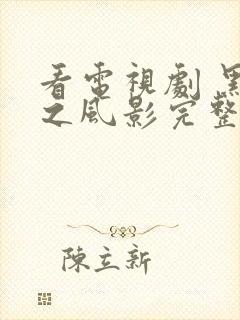 看電視劇 黑
之風影完整
陳立新